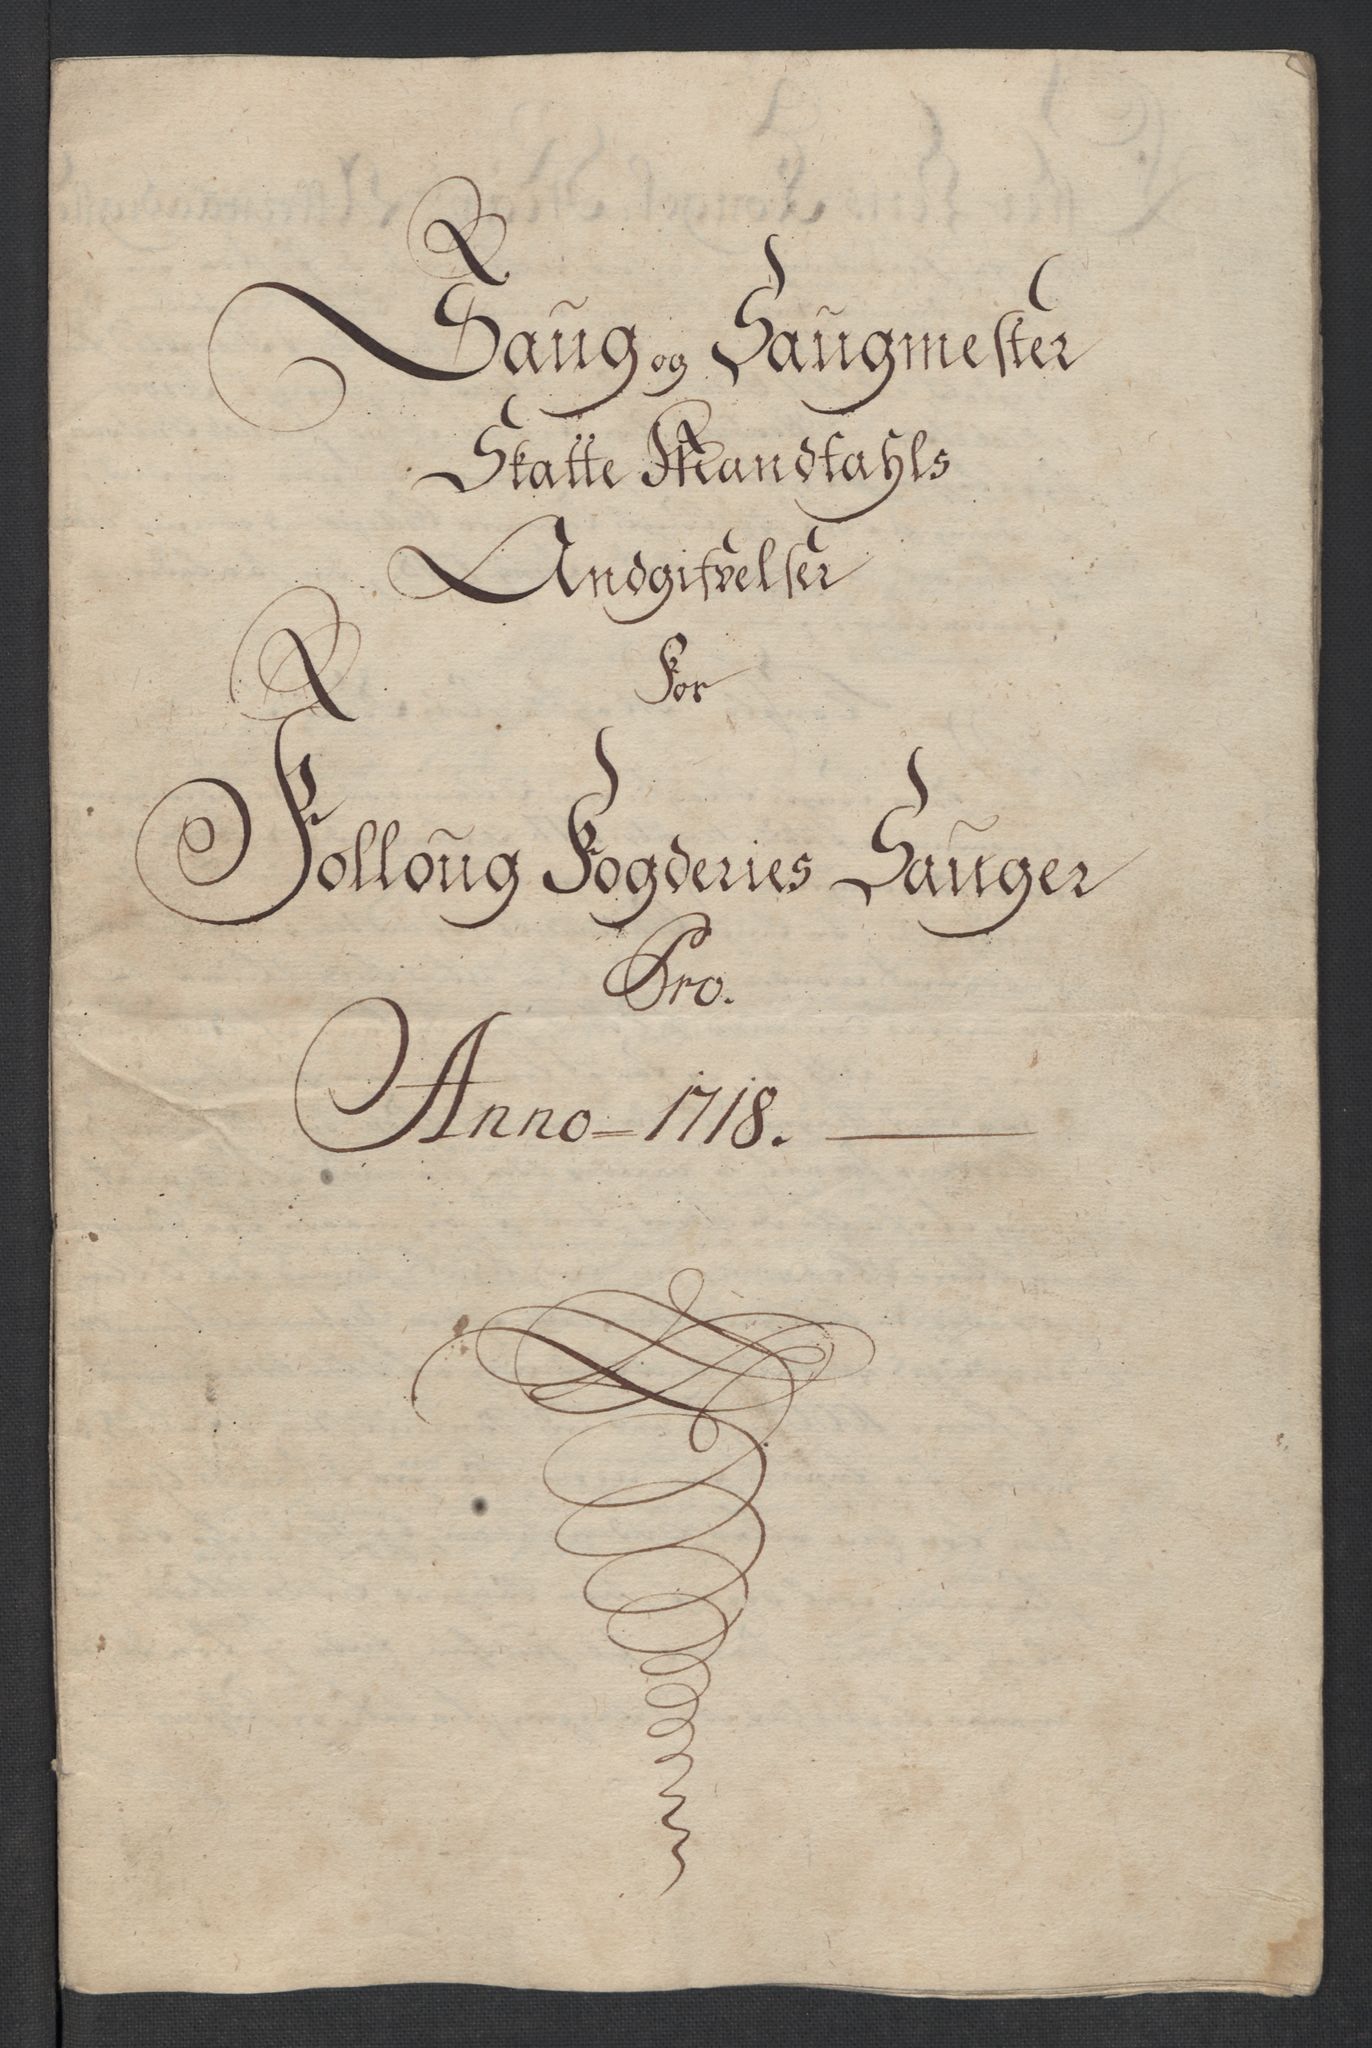 Saug og Saugmester
Skatte Mandtahls
Andgifvelser
For
Folloug Fogderies Sauger
Pro.
Anno = 1718.